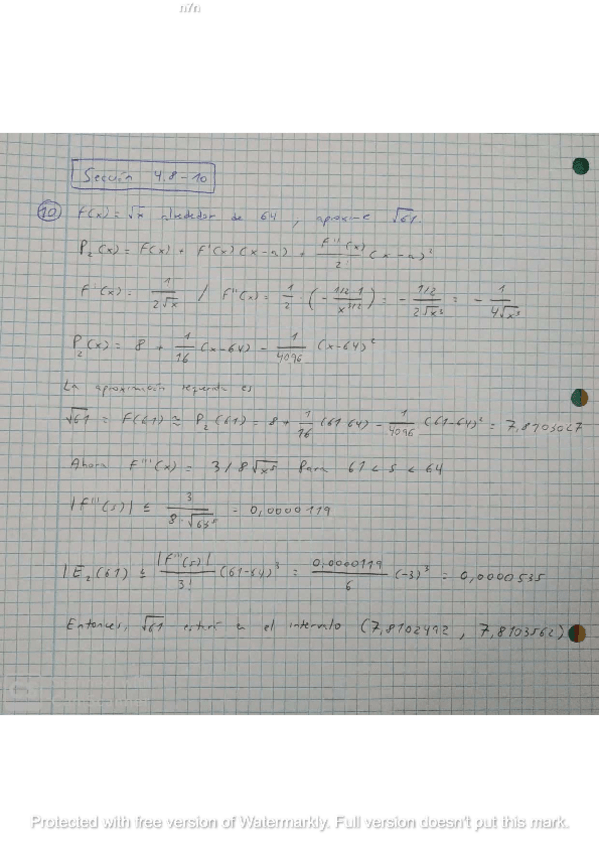 n/n
Sección 4,8-10
10 F(x) = √x alrededor de 64, aproxime √61.
P₂(x) = F(x) + F'(x)(x-a) + F''(x)/2! (x-a)²
F'(x) = 1/(2√x) / F''(x) = 1/2 · (- 1/2·1/x^(3/2)) = - (1/2)/(2√x³) = - 1/(4√x³)
P₂(x) = 8 + 1/16 (x-64) - 1/4096 (x-64)²
La aproximación requerida es
√61 = F(61) ≅ P₂(61) = 8 + 1/16 (61-64) - 1/4096 (61-64)² = 7,8103027
Ahora F'''(x) = 3/8√x⁵ Para 61 < s < 64
|F'''(s)| ≤ 3/(8·√) = 0,0000119
|E₂(61) ≤ |F'''(s)|/3! (61-64)³ = 0,0000119/6 (-3)³ = 0,0000535
Entonces, √61 en el intervalo (7,8102492, 7,8103562)
Protected with free version of Watermarkly. Full version doesn't put this mark.